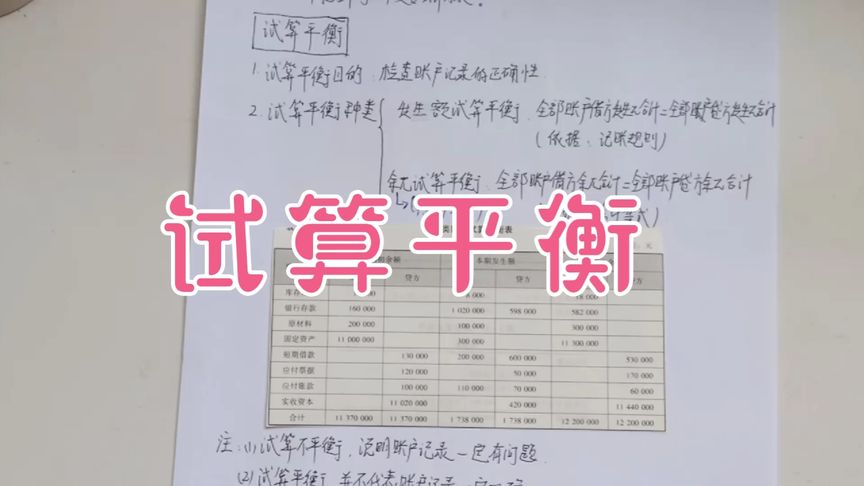 试算平衡
1. 试算平衡目的：检查账户记录的正确性
2. 试算平衡种类
发生额试算平衡：全部账户借方发生额合计=全部账户贷方发生额合计
（依据：记账规则）
余额试算平衡：全部账户借方余额合计=全部账户贷方余额合计
试算平衡
贷方 贷方
银行存款 160 000 1 020 000 598 000 582 000
原材料 200 000 100 000 300 000
固定资产 11 000 000 300 000 11 300 000
短期借款 130 000 200 000 600 000 530 000
应付票据 120 000 50 000 170 000
应付账款 100 000 110 000 70 000 60 000
实收资本 11 020 000 420 000 11 440 000
合计 11 370 000 11 370 000 1 738 000 1 738 000 12 200 000 12 200 000
注：(1) 试算不平衡，说明账户记录一定有问题
(2) 试算平衡，并不代表账户记录一定